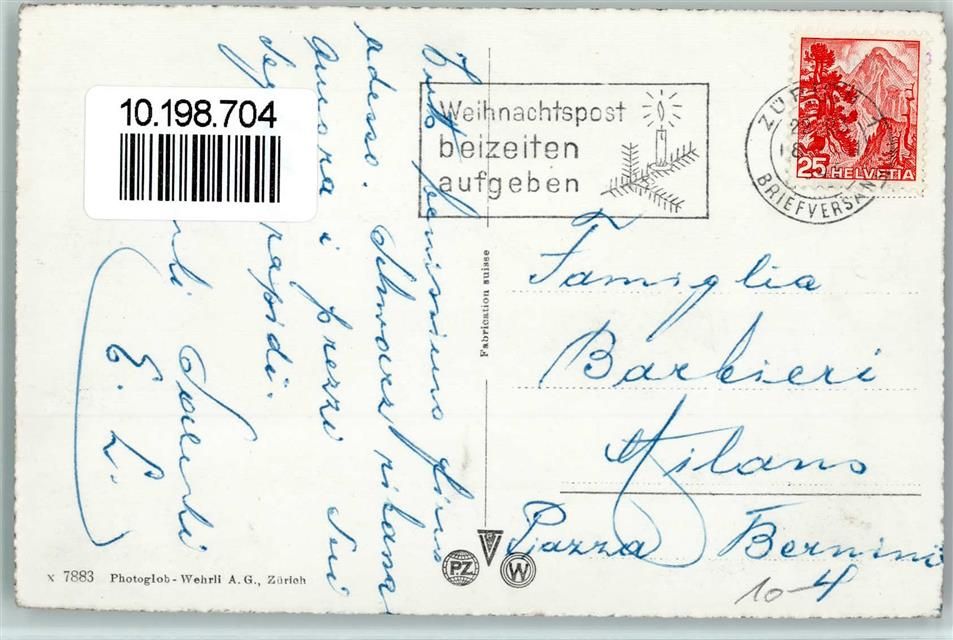 10.198.704
Tutto benissimo fino
adesso. Schwarz ritarda
ancora i prezzi Sui
rapidi.
Saluti
E. L.
Weihnachtspost
beizeiten
aufgeben
ZÜRICH
BRIEFVERSAND
25 HELVETIA
Fabrication suisse
Famiglia
Barbieri
Milano
Piazza Bernini
10 4
x 7883 Photoglob-Wehrli A.G., Zürich
P.Z.
W